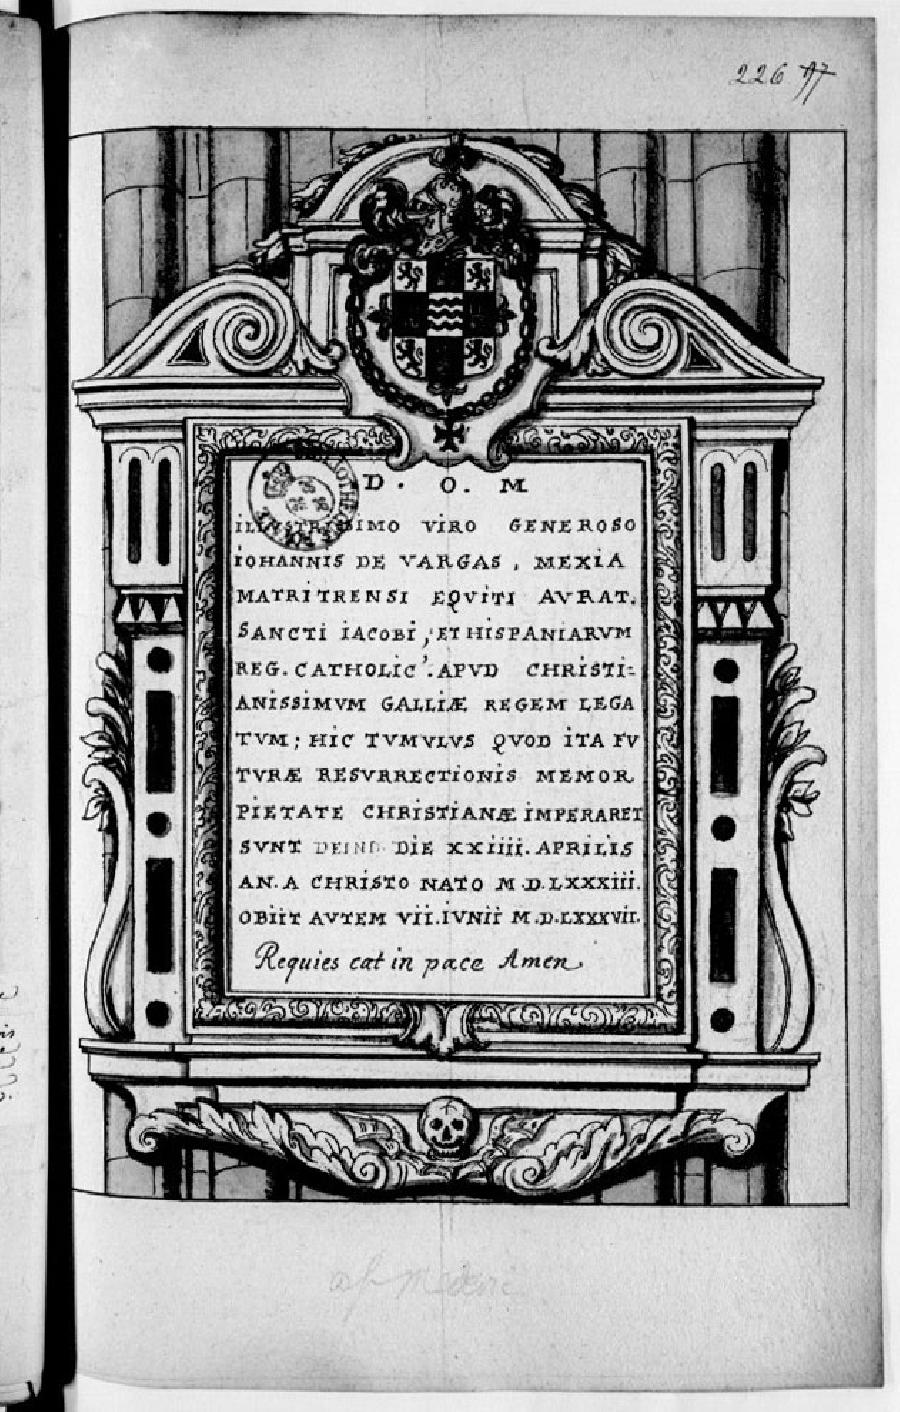 226 97
D. O. M
ILLUSTRISSIMO VIRO GENEROSO
IOHANNIS DE VARGAS, MEXIA
MATRITRENSI EQVITI AVRAT.
SANCTI IACOBI, ET HISPANIARVM
REG. CATHOLIC'. APVD CHRISTI=
ANISSIMVM GALLIÆ REGEM LEGA
TVM; HIC TVMVLVS QVOD ITA FV
TVRÆ RESVRRECTIONIS MEMOR
PIETATE CHRISTIANÆ IMPERARET
SVNT DEIND DIE XXIIII. APRILIS
AN. A CHRISTO NATO M.D.LXXXIII.
OBIIT AVTEM VII. IVNII M.D.LXXXVII.
Requies cat in pace Amen